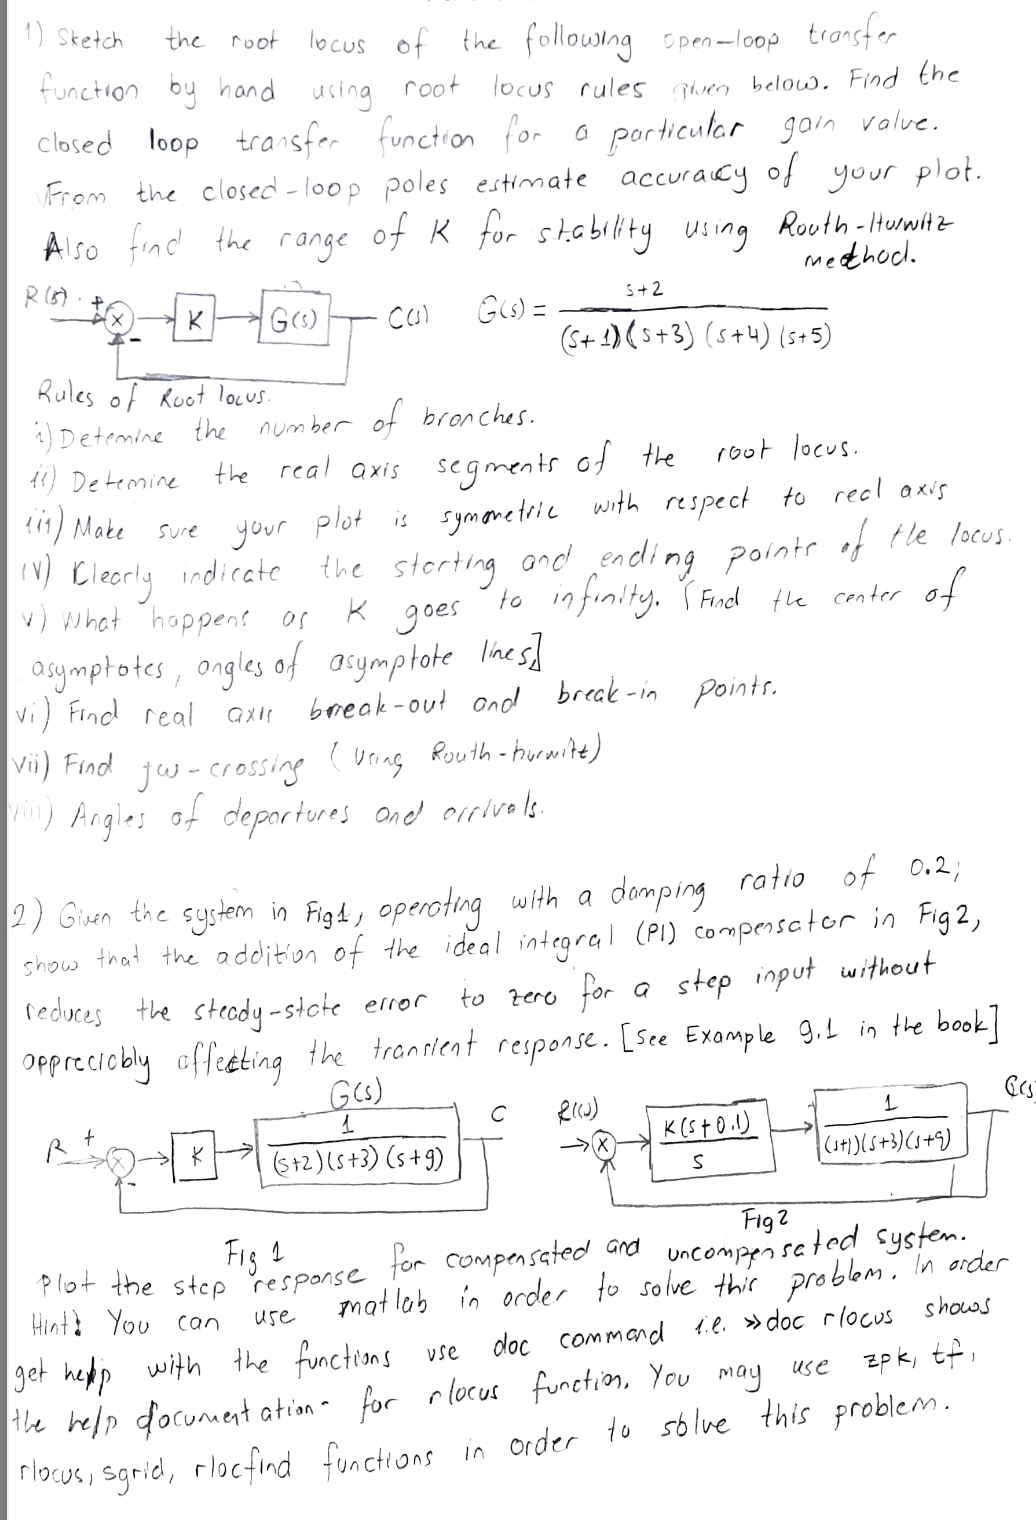 1) Sketch the root locus of the following open-loop transfer
function by hand using root locus rules given below. Find the
closed loop transfer function for a particular gain value.
From the closed-loop poles estimate accuracy of your plot.
Also find the range of K for stability using Routh-Hurwitz
method.
R(s) + X - K G(s) C(s) G(s) = s+2 / (s+1)(s+3)(s+4)(s+5)
Rules of Root locus.
i) Detemine the number of branches.
ii) Detemine the real axis segments of the root locus.
iii) Make sure your plot is symmetric with respect to real axis
iv) Clearly indicate the starting and ending points of the locus.
v) What happens as K goes to infinity. [Find the center of
asymptotes, angles of asymptote lines]
vi) Find real axis break-out and break-in points.
vii) Find jw-crossing (Using Routh-hurwitz)
viii) Angles of departures and arrivals.
2) Given the system in Fig1, operating with a damping ratio of 0.2;
show that the addition of the ideal integral (PI) compensator in Fig2,
reduces the steady-state error to zero for a step input without
appreciably affecting the transient response. [See Example 9.1 in the book]
G(s)
R + X - K 1 / (s+2)(s+3)(s+9) C
R(s) X K(s+0.1) / s 1 / (s+1)(s+3)(s+9) C(s)
Fig 1
Fig 2
Plot the step response for compensated and uncompensated system.
Hint: You can use matlab in order to solve this problem. In order
get help with the functions use doc command i.e. >>doc rlocus shows
the help documentation for rlocus function. You may use zpk, tf,
rlocus, sgrid, rlocfind functions in order to solve this problem.